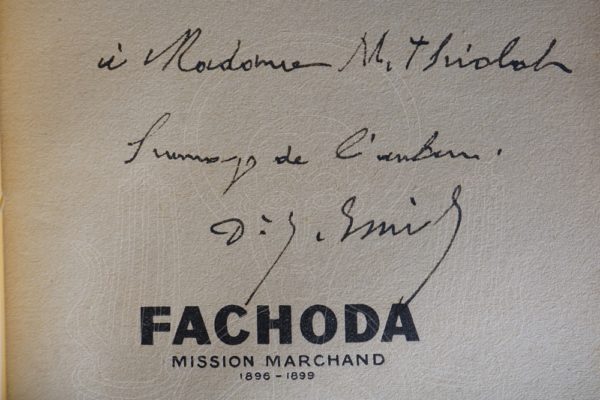 à Madame M. Thiolat
Hommage de l'auteur.
Dr J. Emily
FACHODA
MISSION MARCHAND
1896-1899